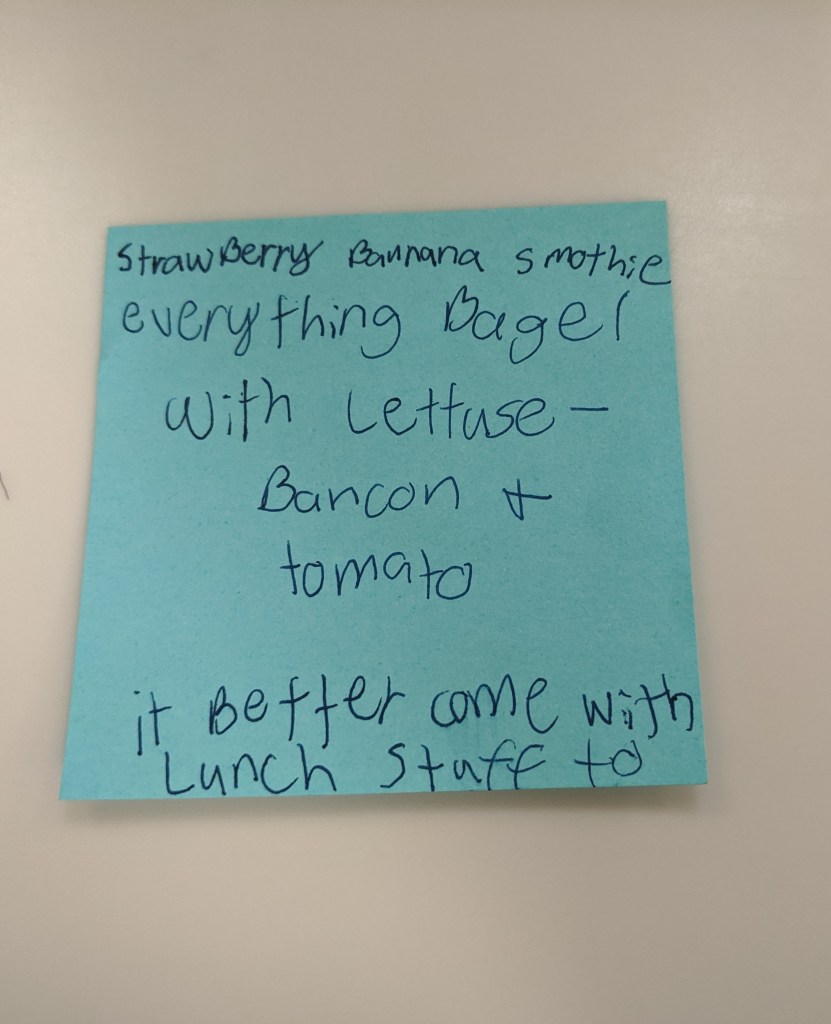 StrawBerry Bannana smothie
everything Bagel
with Lettuse -
Bancon +
tomato
it Better come with
Lunch Stuff to